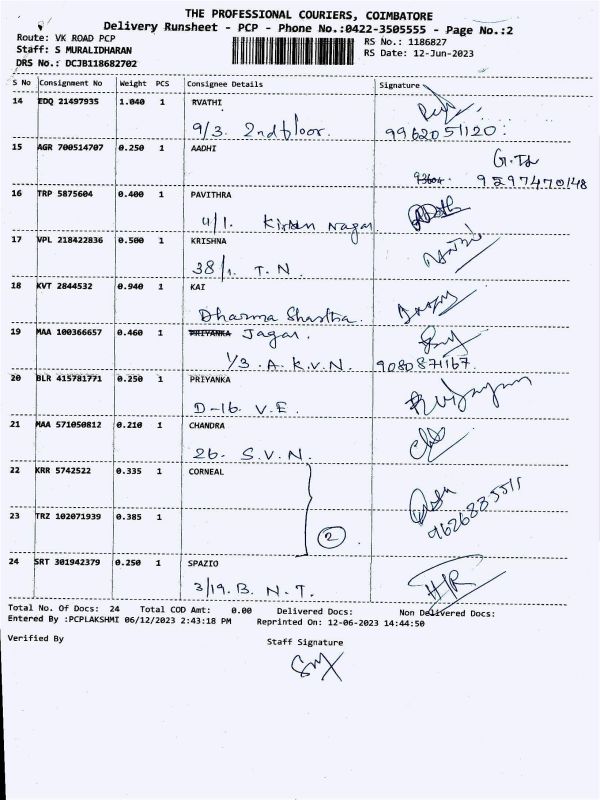 THE PROFESSIONAL COURIERS, COIMBATORE
Delivery Runsheet - PCP - Phone No.:0422-3505555 - Page No.:2
Route: VK ROAD PCP
RS No.: 1186827
Staff: S MURALIDHARAN
RS Date: 12-Jun-2023
DRS No.: DCJB118682702
S No Consignment No Weight PCS Consignee Details Signature
14 EDQ 21497935 1.040 1 RVATHI
9/3. 2nd floor. 9962051120.
15 AGR 700514707 0.250 1 AADHI
16 TRP 5875604 0.400 1 PAVITHRA
4/1. Nagar.
17 VPL 218422836 0.500 1 KRISHNA
38/1. T.N.
18 KVT 2844532 0.940 1 KAI
Dharma Shastha.
19 MAA 100366657 0.460 1 PRIYANKA Jagar.
1/3. A.K.V.N. 9080871167.
20 BLR 415781771 0.250 1 PRIYANKA
D-16. V.E.
21 MAA 571050812 0.210 1 CHANDRA
26- S.V.N.
22 KRR 5742522 0.335 1 CORNEAL
9626885511
23 TRZ 102071939 0.385 1
2
24 SRT 301942379 0.250 1 SPAZIO
3/19.B. N.T.
Total No. Of Docs: 24 Total COD Amt: 0.00 Delivered Docs: Non Delivered Docs:
Entered By :PCPLAKSHMI 06/12/2023 2:43:18 PM Reprinted On: 12-06-2023 14:44:50
Verified By Staff Signature